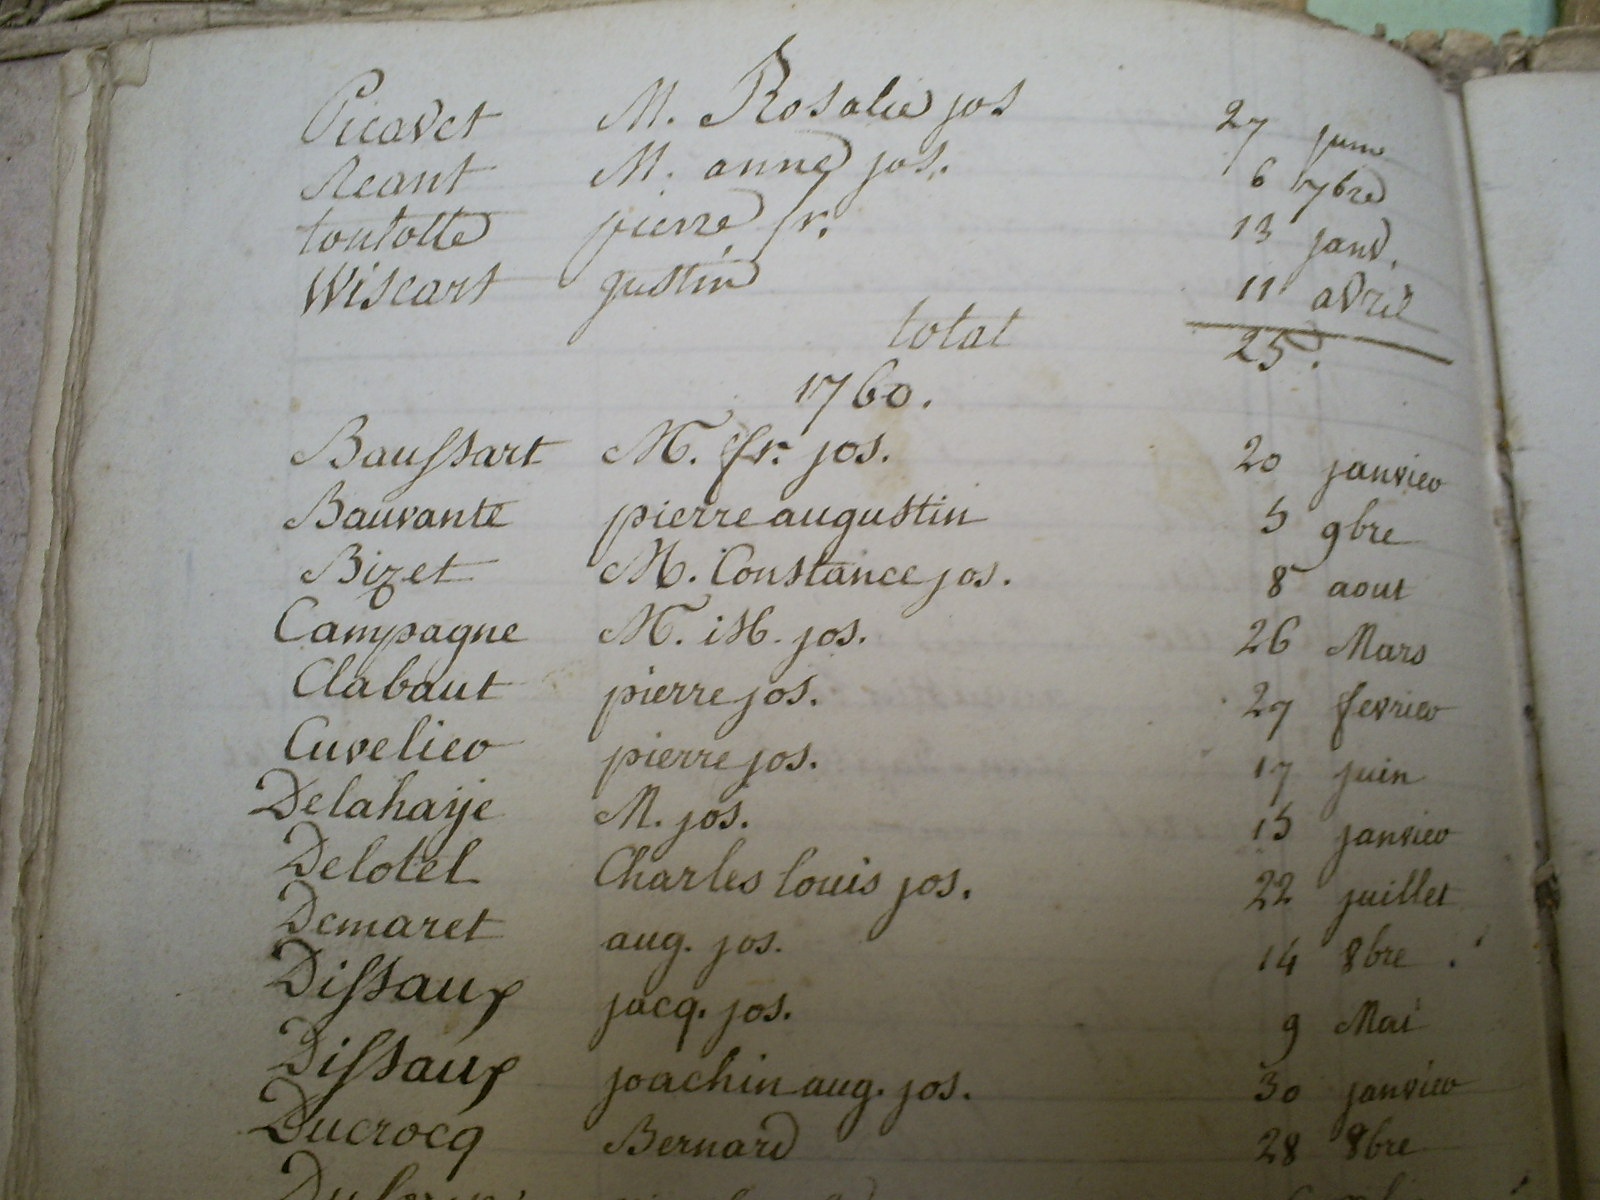 Picavet M. Rosalie jos 27 juin
Reant M. anne jos. 6 7bre
toutotte pierre fr. 13 janv.
Wiscart justin 11 avril
total 25.
1760.
Baussart M. fr. jos. 20 janvier
Bauvante pierre augustin 5 9bre
Bizet M. Constance jos. 8 aout
Campagne M. is6. jos. 26 Mars
Clabaut pierre jos. 27 fevrier
Cuvelier pierre jos. 17 juin
Delahaye M. jos. 15 janvier
Delotel Charles louis jos. 22 juillet
Demaret aug. jos. 14 8bre
Dissaux jacq. jos. 9 Mai
Dissaux joachin aug. jos. 30 janvier
Ducrocq Bernard 28 8bre